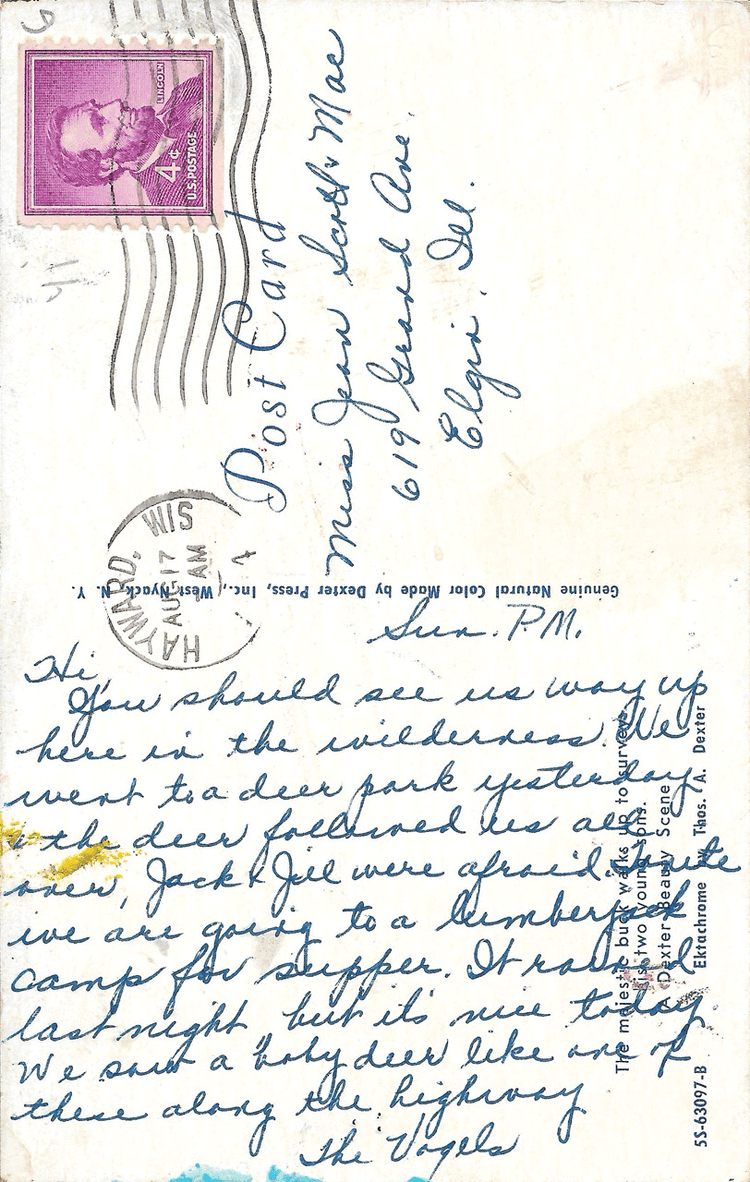 LINCOLN
4¢
U.S. POSTAGE
HAYWARD, WIS
AUG 17
AM
Post Card
Miss Jean Scott & Mae
619 Grand Ave.
Elgin, Ill.
Genuine Natural Color Made by Dexter Press, Inc., West Nyack, N. Y.
Sun. P.M.
Hi,
You should see us way up
here in the wilderness. We
went to a deer park yesterday
& the deer followed us all
over, Jack & Jill were afraid. Tonite
we are going to a lumberjack
camp for supper. It rained
last night, but it's nice today.
We saw a baby deer like one of
these along the highway
The Vogels
The majestic buck walks up to surveys
his two young sons.
A Dexter Beauty Scene
5S-63097-B
Ektachrome by Thos. A. Dexter